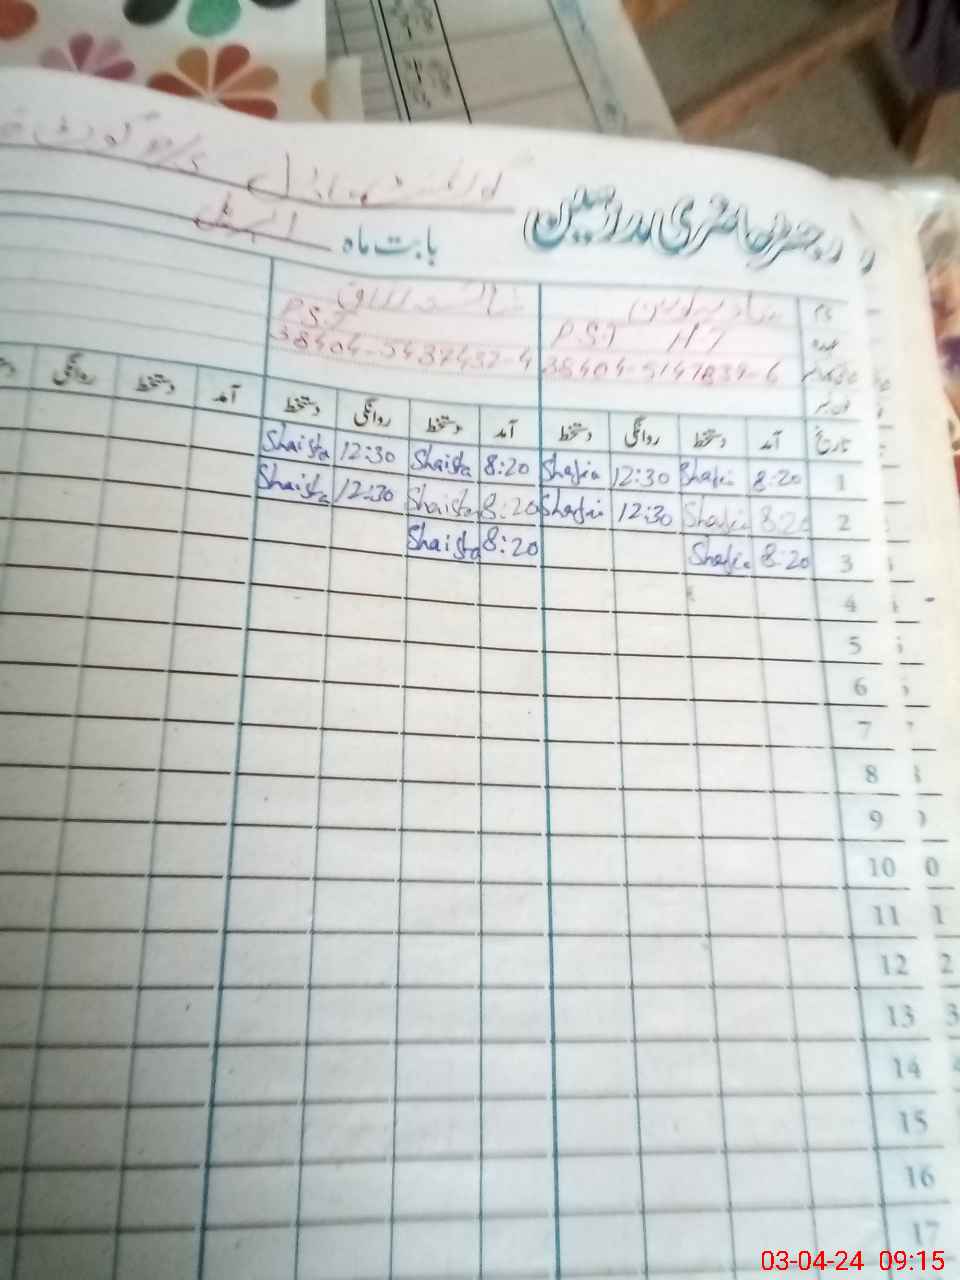 رجسٹر حاضری مدرسین
بابت ماہ اپریل
نام
عہدہ
P.S.T H T P.S.T
38404-5147839-6 38404-5437437-4
تاریخ آمد دستخط روانگی دستخط آمد دستخط روانگی دستخط آمد دستخط روانگی
1 8:20 Shafia 12:30 Shafia 8:20 Shaista 12:30 Shaista
2 8:20 Shafia 12:30 Shafia 8:20 Shaista 12:30 Shaista
3 8:20 Shafia 8:20 Shaista
4
5
6
7
8
9
10 0
11 1
12 2
13 3
14 4
15
16
17
03-04-24 09:15